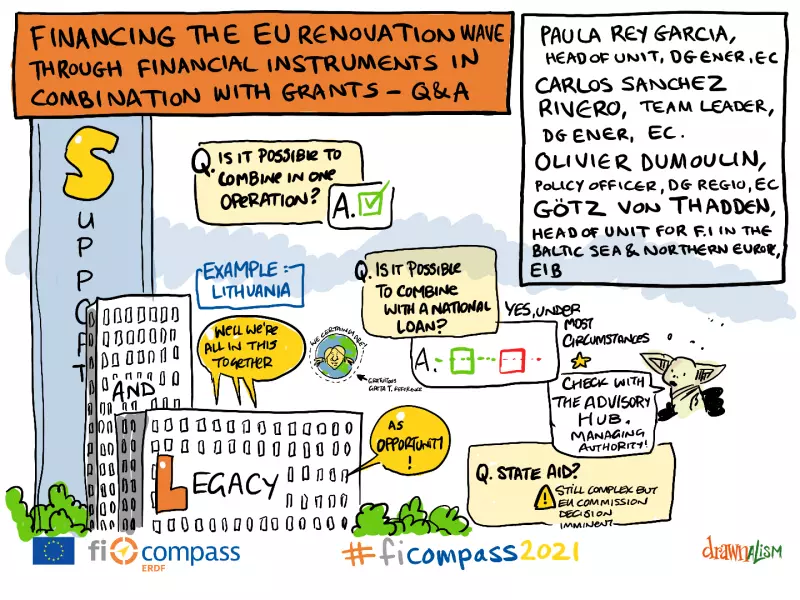 FINANCING THE EU RENOVATION WAVE
THROUGH FINANCIAL INSTRUMENTS IN
COMBINATION WITH GRANTS – Q&A
PAULA REY GARCIA,
HEAD OF UNIT, DG ENER, EC
CARLOS SANCHEZ
RIVERO, TEAM LEADER,
DG ENER, EC.
OLIVIER DUMOULIN,
POLICY OFFICER, DG REGIO, EC
GÖTZ VON THADDEN,
HEAD OF UNIT FOR F.I IN THE
BALTIC SEA & NORTHERN EUROPE,
EIB
SUPPORT
AND
LEGACY
Q. IS IT POSSIBLE TO
COMBINE IN ONE
OPERATION?
A.
EXAMPLE:-
LITHUANIA
WELL WE'RE
ALL IN THIS
TOGETHER
WE CERTAINLY ARE!
GRATUITOUS
GRETA T. REFERENCE
Q. IS IT POSSIBLE
TO COMBINE
WITH A NATIONAL
LOAN?
A.
YES, UNDER
MOST
CIRCUMSTANCES
CHECK WITH
THE ADVISORY
HUB.
MANAGING
AUTHORITY!
AS
OPPORTUNITY
!
Q. STATE AID?
STILL COMPLEX BUT
EU COMMISSION
DECISION
IMMINENT
fi compass
ERDF
#ficompass2021
drawnalism